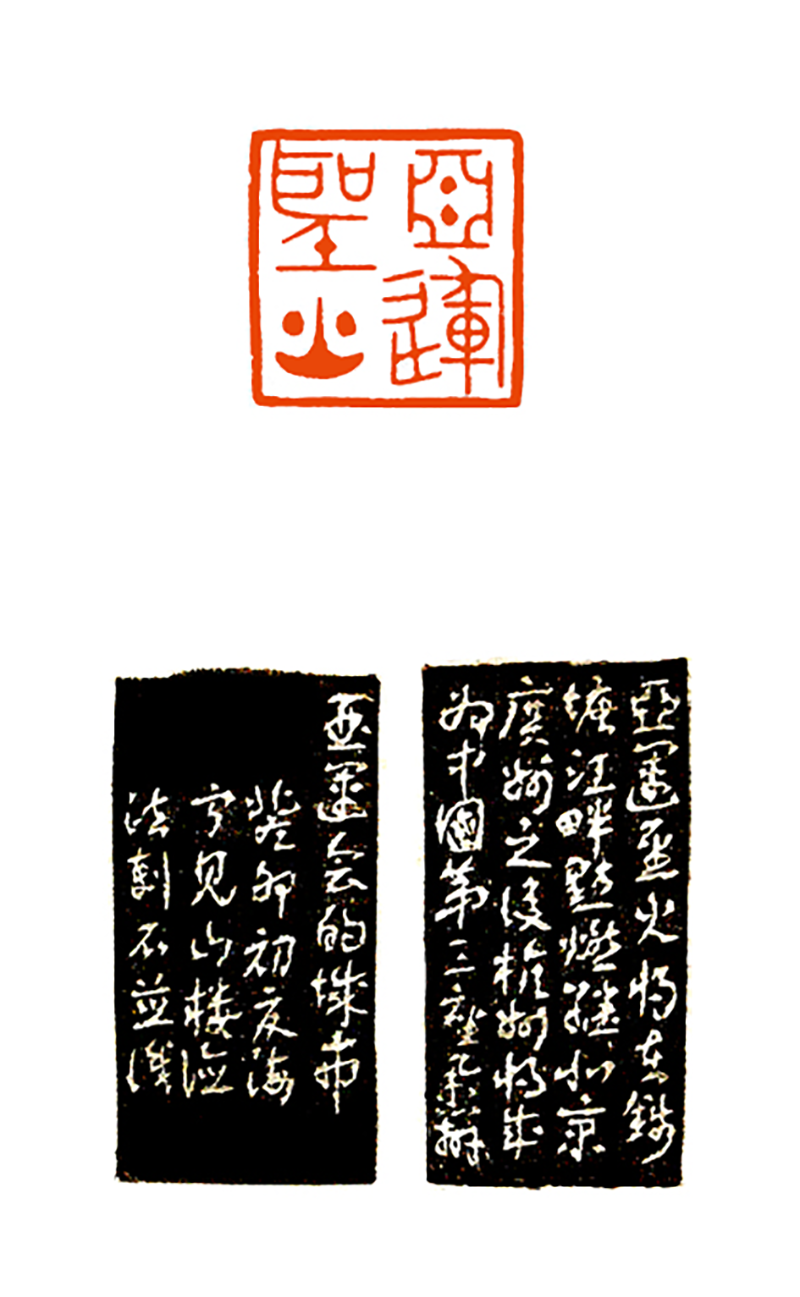 亞運
聖火
亞運聖火將在錢
塘江畔點燃繼北京
廣州之後杭州將成
為中國第三座承辦
亞運会的城市
癸卯初夏海
寧見山樓
法刻石並識